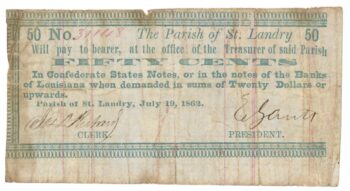 50 No. The Parish of St. Landry 50
Will pay to bearer, at the office of the Treasurer of said Parish
FIFTY CENTS
In Confederate States Notes, or in the notes of the Banks
of Louisiana when demanded in sums of Twenty Dollars or
upwards.
Parish of St. Landry, July 19, 1862.
CLERK. PRESIDENT.